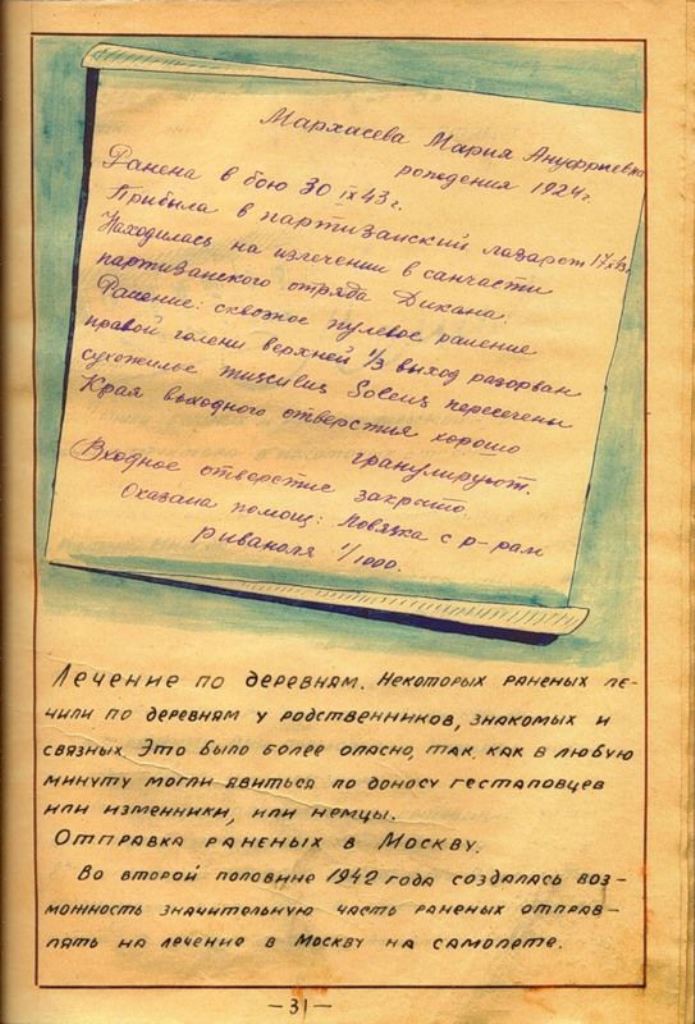 Мархасева Мария Ануфриевна
рождения 1924г.
Ранена в бою 30 IX 43 г.
Прибыла в партизанский лазарет 17 X 43г.
Находилась на излечении в санчасти
партизанского отряда Дикана.
Ранение: сквозное пулевое ранение
правой голени верхней 1/3 выход разорван
сухожилье Soleus пересечены
Края выходного отверстья хорошо
гранулируют.
Входное отверстие закрыто.
Оказана помощ: Повязка с р-рам
риваноля 1/1000.
Лечение по деревням. Некоторых раненых ле-
чили по деревням у родственников, знакомых и
связных. Это было более опасно, так, как в любую
минуту могли явиться по доносу гестаповцев
или изменники, или немцы.
Отправка раненых в Москву.
Во второй половине 1942 года создалась воз-
можность значительную часть раненых отправ-
лять на лечение в Москву на самолете.
— 31 —